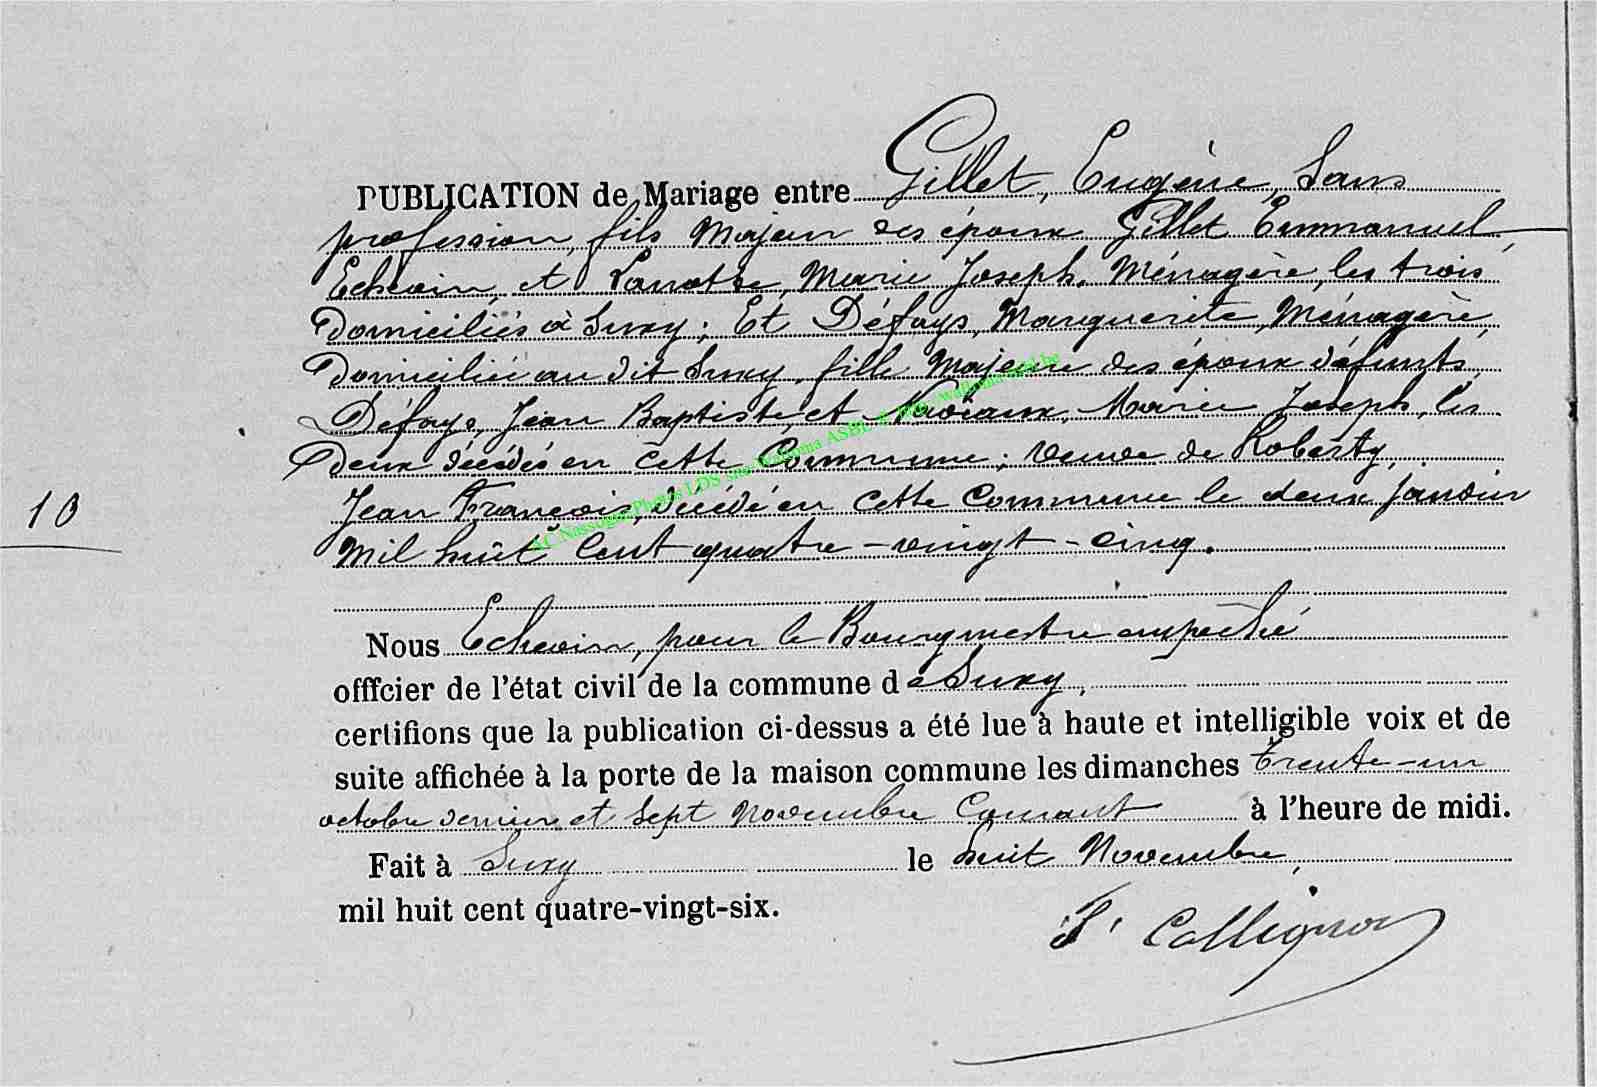 PUBLICATION de Mariage entre Gillet, Eugène, Sans
profession, fils Majeur des époux Gillet Emmanuel,
Echevin, et Lanotte, Marie Joseph, Ménagère, les trois
Domiciliés à Suxy; Et Défays, Marguerite, Ménagère,
Domiciliée au dit Suxy, fille Majeure des époux défunts,
Défays, Jean Baptiste, et Marie Joseph, les
Deux décédés en cette Commune; veuve de Roberty,
Jean François, décédé en cette Commune le deux Janvier
Mil huit Cent quatre-vingt-cinq.
10
AC Nassogne Photos LDS site Walloma ASBL
Nous Echevin, pour le Bourgmestre empêché
offfcier de l'état civil de la commune de Suxy,
certifions que la publication ci-dessus a été lue à haute et intelligible voix et de
suite affichée à la porte de la maison commune les dimanches trente-un
octobre dernier et sept Novembre Courant à l'heure de midi.
Fait à Suxy le huit Novembre,
mil huit cent quatre-vingt-six.
Collignon